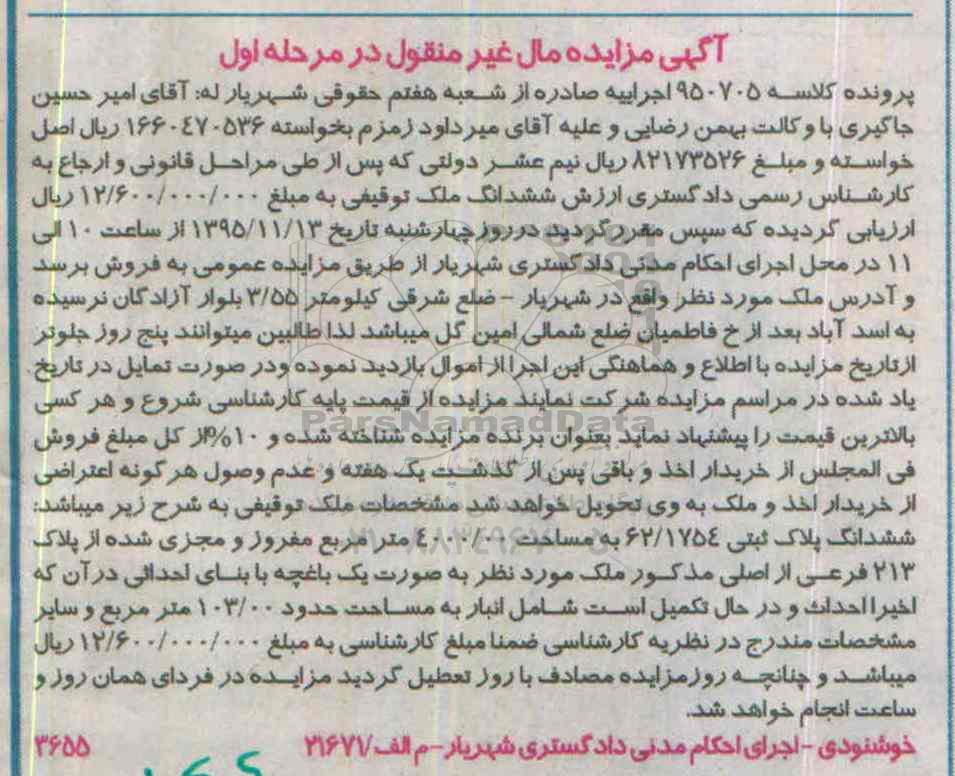 آگهی مزایده مال غیر منقول در مرحله اول
پرونده کلاسه ۹۵۰۷۰۵ اجراییه صادره از شعبه هفتم حقوقی شهریار له: آقای امیر حسین
جاگیری با وکالت بهمن رضایی و علیه آقای میرداود زمزم بخواسته ۱۶۶۰۴۷۰۵۳۶ ریال اصل
خواسته و مبلغ ۸۲۱۷۳۵۲۶ ریال نیم عشر دولتی که پس از طی مراحل قانونی و ارجاع به
کارشناس رسمی دادگستری ارزش ششدانگ ملک توقیفی به مبلغ ۱۲/۶۰۰/۰۰۰/۰۰۰ ریال
ارزیابی گردیده که سپس مقرر گردید در روز چهارشنبه تاریخ ۱۳۹۵/۱۱/۱۳ از ساعت ۱۰ الی
۱۱ در محل اجرای احکام مدنی دادگستری شهریار از طریق مزایده عمومی به فروش برسد
و آدرس ملک مورد نظر واقع در شهریار - ضلع شرقی کیلومتر ۳/۵۵ بلوار آزادگان نرسیده
به اسد آباد بعد از خ فاطمیان ضلع شمالی امین گل میباشد لذا طالبین میتوانند پنج روز جلوتر
ازتاریخ مزایده با اطلاع و هماهنگی این اجرا از اموال بازدید نموده ودر صورت تمایل در تاریخ
یاد شده در مراسم مزایده شرکت نمایند مزایده از قیمت پایه کارشناسی شروع و هر کسی
بالاترین قیمت را پیشنهاد نماید بعنوان برنده مزایده شناخته شده و ۱۰% از کل مبلغ فروش
فی المجلس از خریدار اخذ و باقی پس از گذشت یک هفته و عدم وصول هر گونه اعتراضی
از خریدار اخذ و ملک به وی تحویل خواهد شد مشخصات ملک توقیفی به شرح زیر میباشد:
ششدانگ پلاک ثبتی ۶۲/۱۷۵۴ به مساحت ۴۰۰۰/۰۰ متر مربع مفروز و مجزی شده از پلاک
۲۱۳ فرعی از اصلی مذکور ملک مورد نظر به صورت یک باغچه با بنای احداثی در آن که
اخیرا احداث و در حال تکمیل است شامل انبار به مساحت حدود ۱۰۳/۰۰ متر مربع و سایر
مشخصات مندرج در نظریه کارشناسی ضمنا مبلغ کارشناسی به مبلغ ۱۲/۶۰۰/۰۰۰/۰۰۰ ریال
میباشد و چنانچه روزمزایده مصادف با روز تعطیل گردید مزایده در فردای همان روز و
ساعت انجام خواهد شد.
خوشنودی - اجرای احکام مدنی دادگستری شهریار - م الف/۲۱۶۷۱ ۳۶۵۵
ParsNamadData